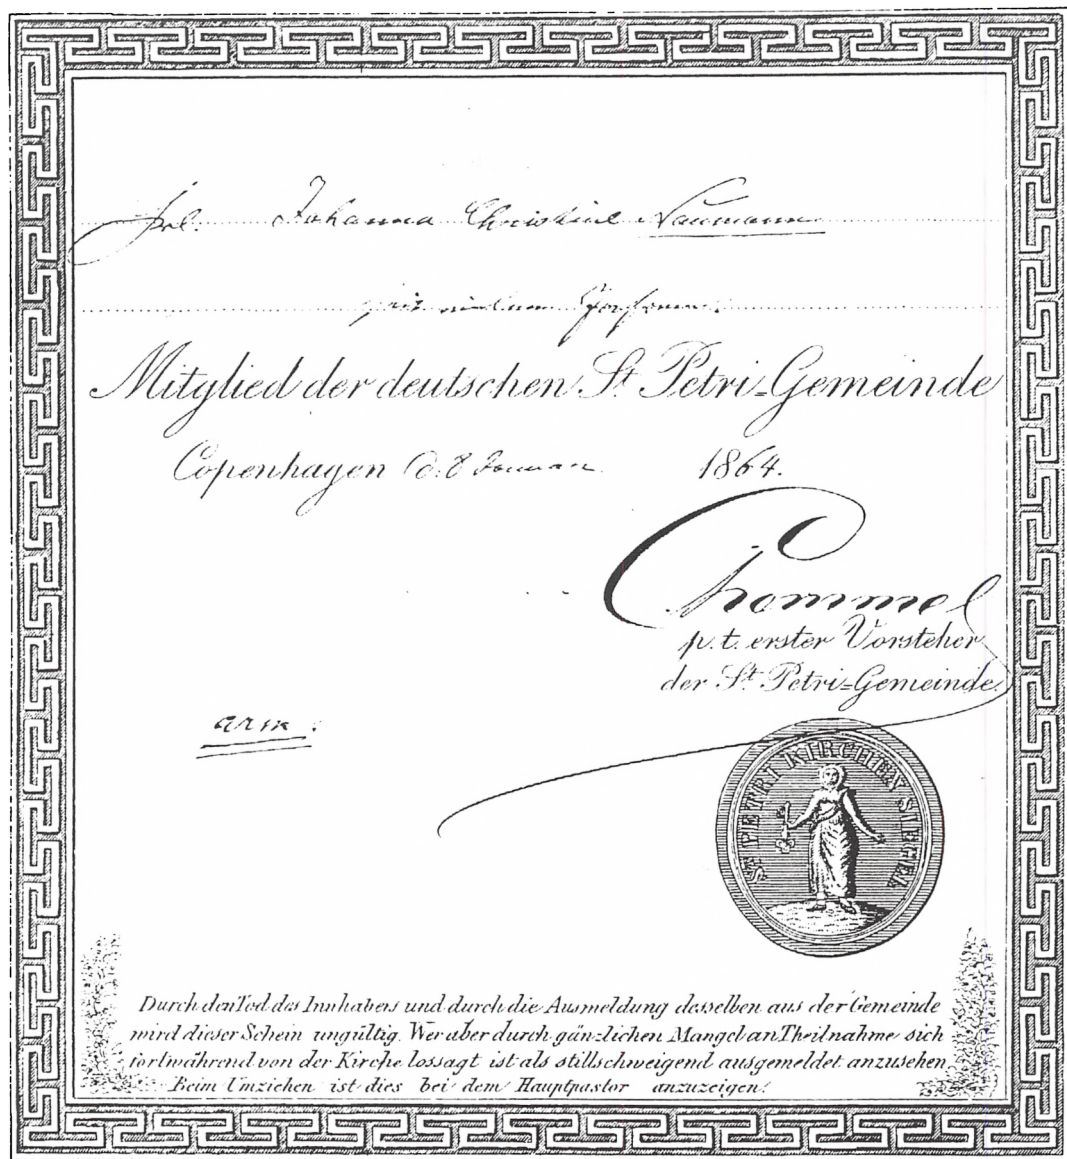 Frl. Johanna Christine Naumann
seit vielen Jahren
Mitglied der deutschen St. Petri=Gemeinde
Copenhagen d. 8 Januar 1864.
p. t. erster Vorsteher
der St. Petri=Gemeinde.
arm.
ST. PETRI KIRCHEN SIEGEL
Durch den Tod des Innhabers und durch die Ausmeldung desselben aus der Gemeinde
wird dieser Schein ungültig. Wer aber durch gänzlichen Mangel an Theilnahme sich
fortwährend von der Kirche lossagt ist als stillschweigend ausgemeldet anzusehen
Beim Umziehen ist dies bei dem Hauptpastor anzuzeigen.